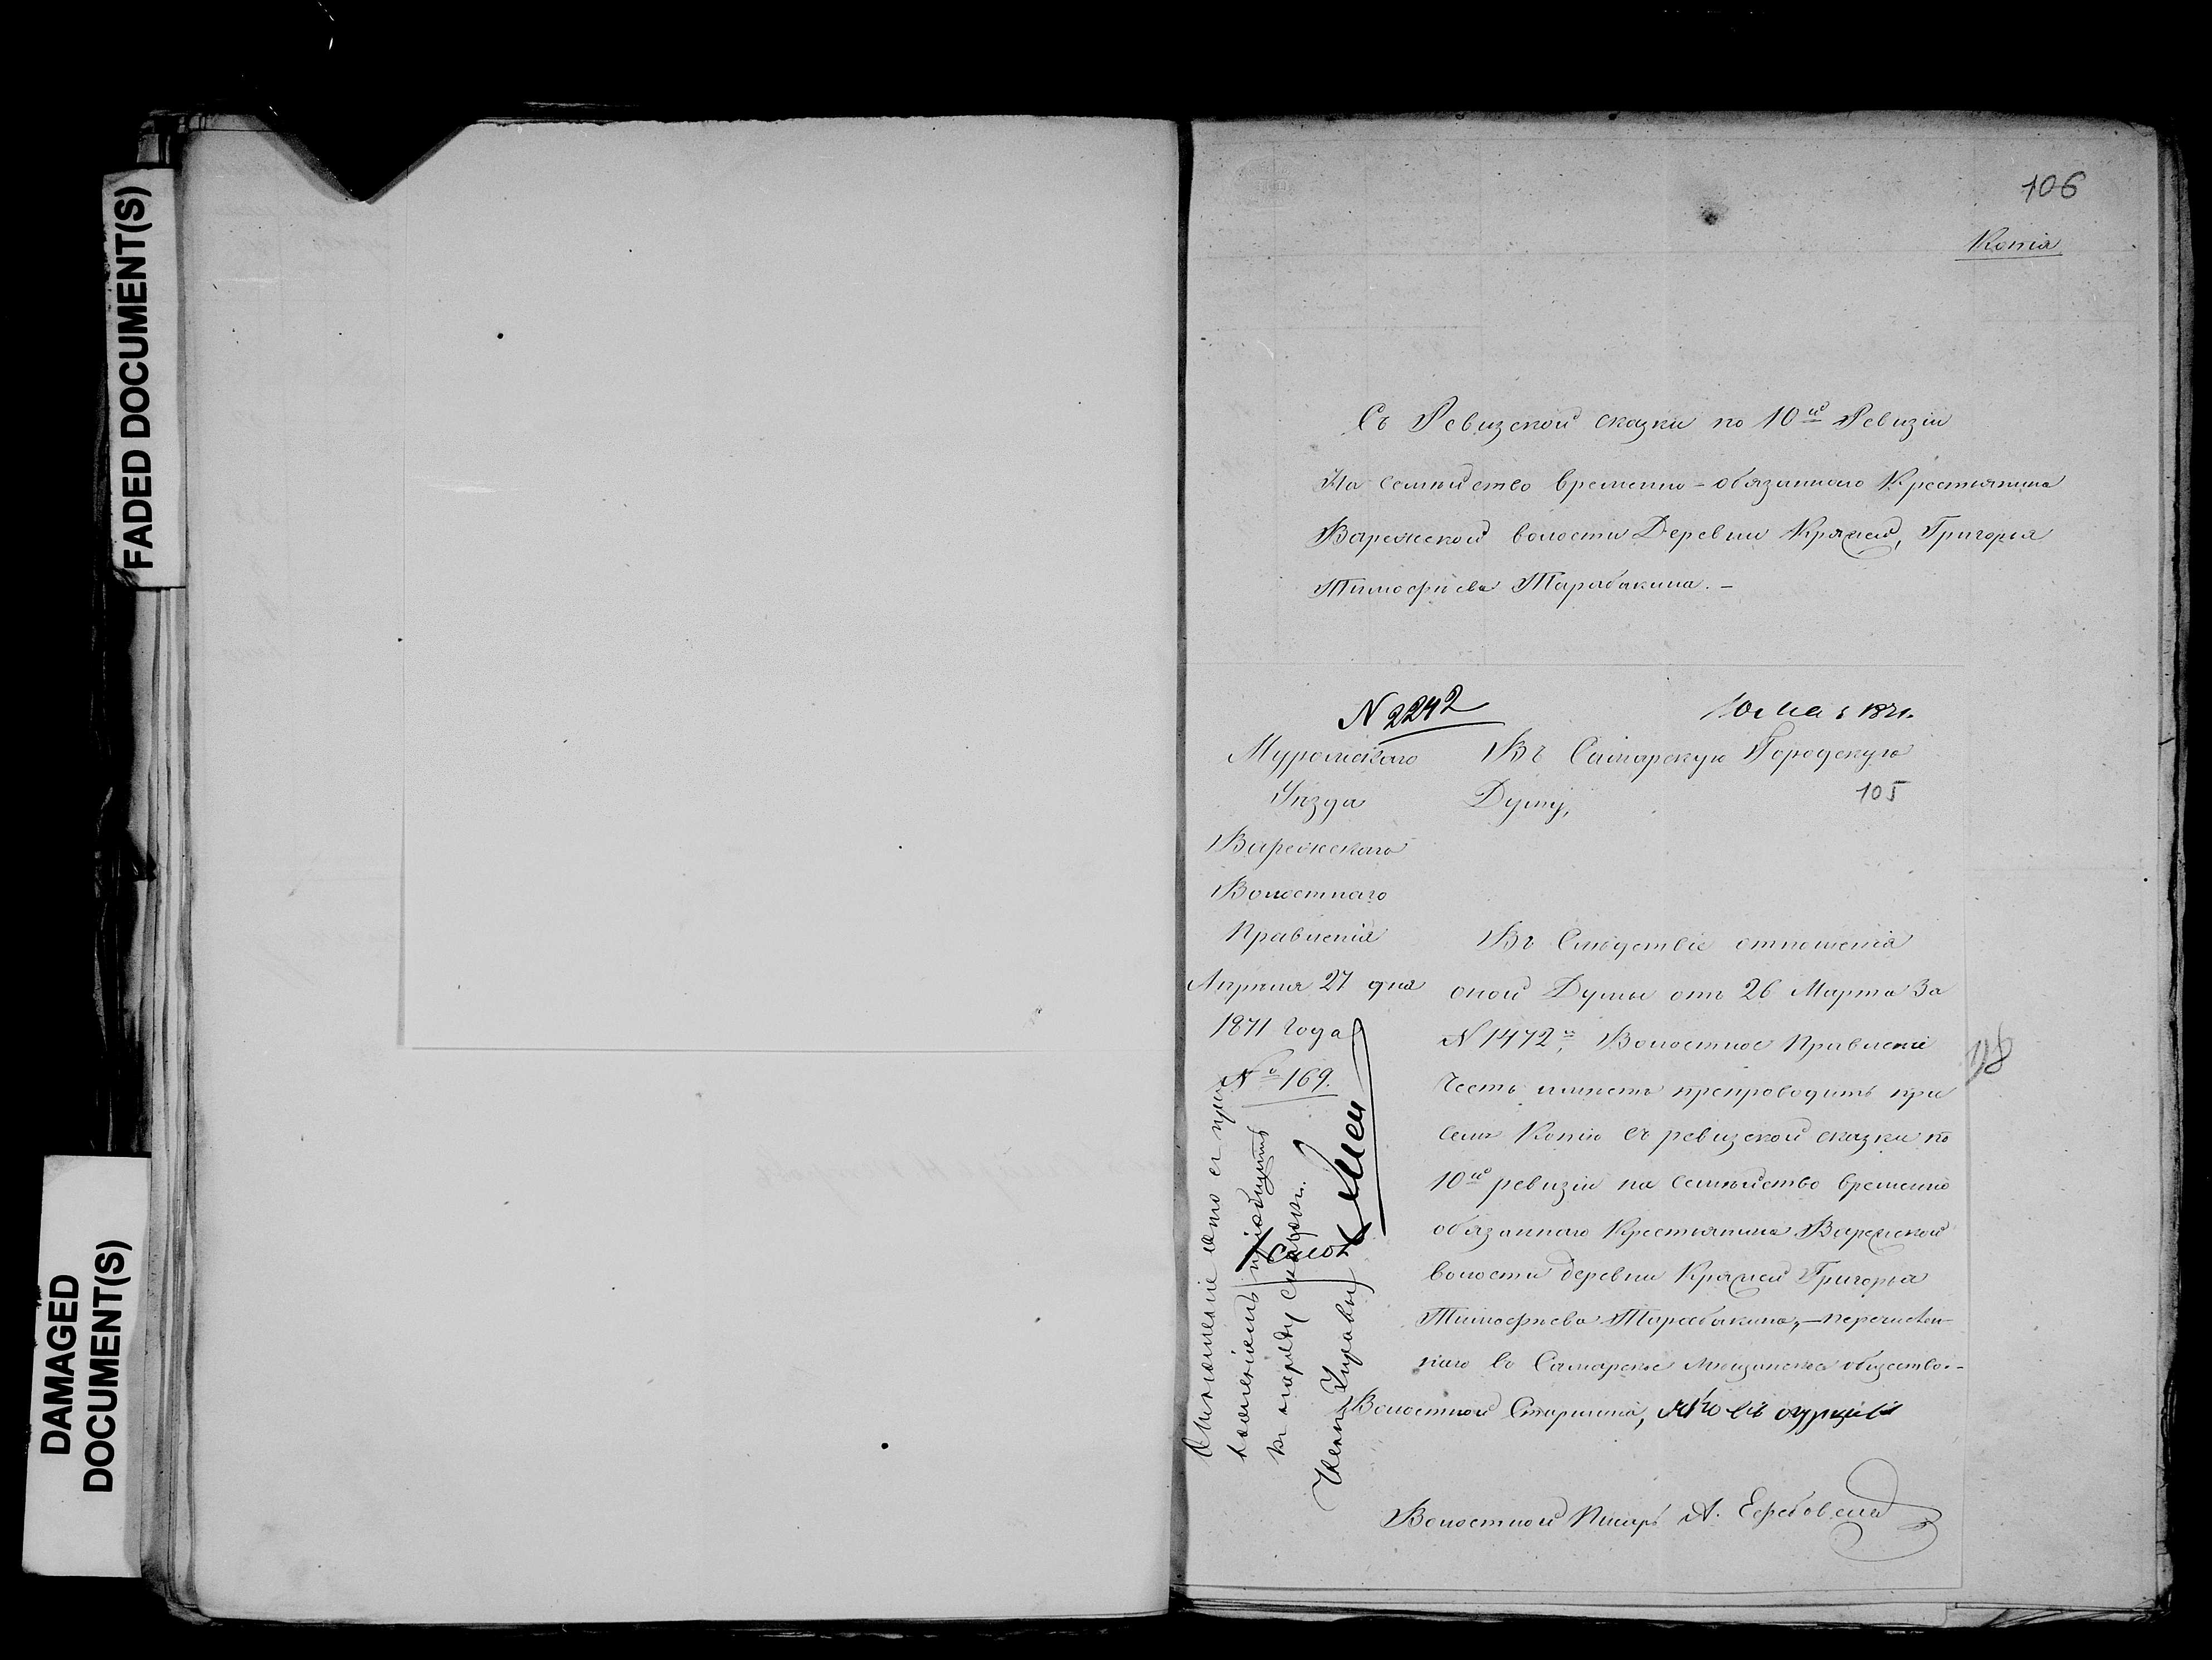 FADED DOCUMENT(S)
DAMAGED
DOCUMENT(S)
106
Копія
Съ Ревизской сказки по 10й Ревизіи
На семѣйство временно-обязаннаго Крестьянина
Варежской волости Деревни Кряжей, Григорья
Тимофѣева Тарабакина.-
N 2242
10 Мая 1871.
Муромскаго
Уѣзда
Варежскаго
Волостнаго
Правленія
Апрѣля 27 дня
1871 года
№ 169.
Въ Самарскую Городскую
Думу,
105
Въ Слѣдствіе отношенія
оной Думы отъ 26 Марта За
N 1472й, Волостное Правленіе
Честь имѣетъ препроводить при
семъ Копію съ ревизской сказки по
10й ревизіи на семѣйство временно
обязаннаго Крестьянина Варежской
волости деревни Кряжей Григорья
Тимофѣева Тарабакина,-перечислен-
наго во Самарское мѣщанское общество.-
Волостной Старшина,
Волостной Писарь А.
118
къ наряду
Членъ Управы